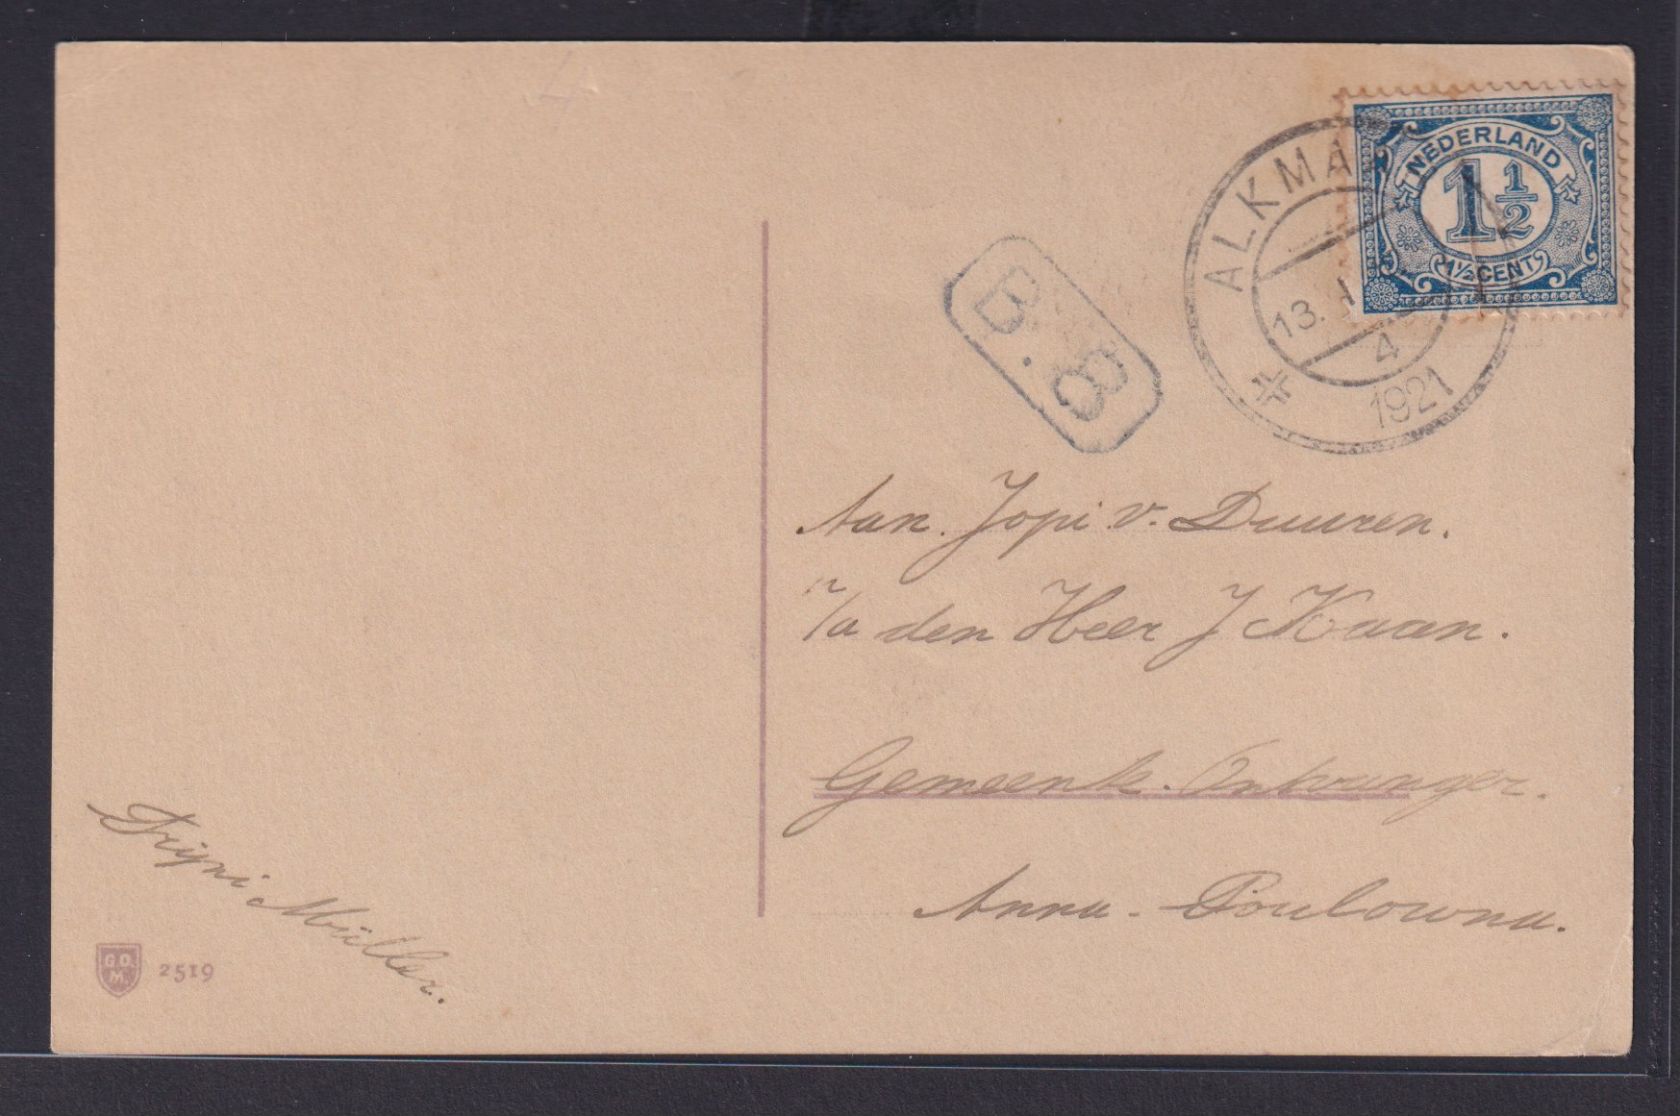 NEDERLAND
1 1/2
1½ CENT
ALKMA
13.
4
1921
B.8
Aan. Jopi v. Duuren.
p/a den Heer J Kaan.
Gemeente. Ontvanger.
Anna-Poulowna.
Trijni Müller.
G.O.
M.
2519